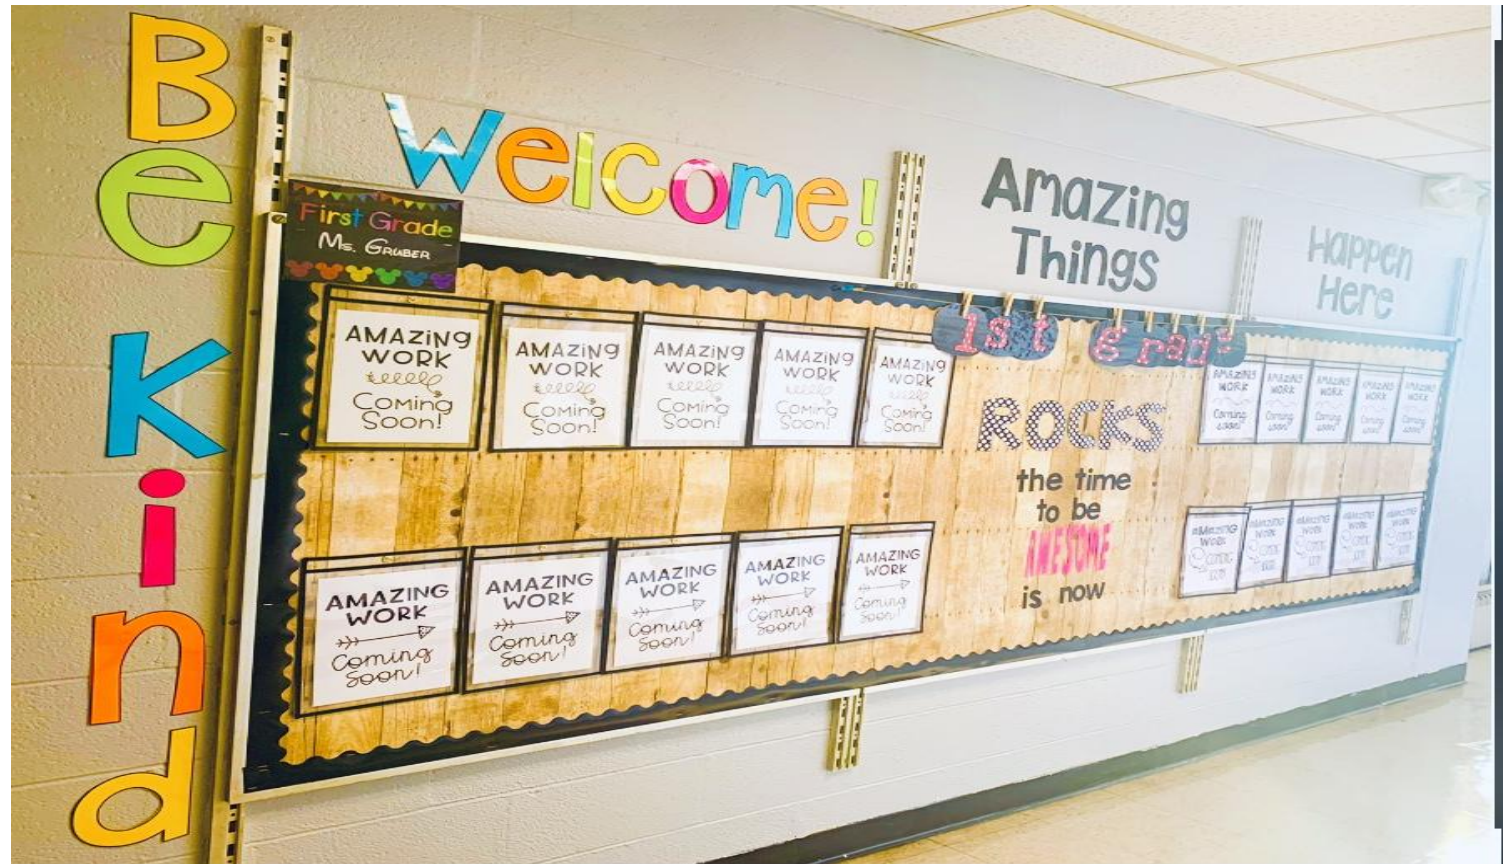 Be Kind
Welcome!
Amazing
Things
Happen
Here
First Grade
Ms. GRUBER
AMAZiNg
WORK
Coming
Soon!
AMAZiNg
WORK
Coming
Soon!
AMAZiNg
WORK
Coming
Soon!
AMAZiNg
WORK
Coming
Soon!
AMAZiNg
WORK
Coming
Soon!
1st grade
ROCKS
the time
to be
AWESOME
is now
AMAZING
WORK
Coming
soon!
AMAZING
WORK
Coming
soon!
AMAZING
WORK
Coming
soon!
AMAZING
WORK
Coming
soon!
AMAZING
WORK
Coming
soon!
AMAZING
WORK
Coming
Soon!
AMAZING
WORK
Coming
Soon!
AMAZING
WORK
Coming
Soon!
AMAZING
WORK
Coming
Soon!
AMAZING
WORK
Coming
Soon!
AMAZING
WORK
COMING
SOON
AMAZING
WORK
COMING
SOON
AMAZING
WORK
COMING
SOON
AMAZING
WORK
COMING
SOON
AMAZING
WORK
COMING
SOON